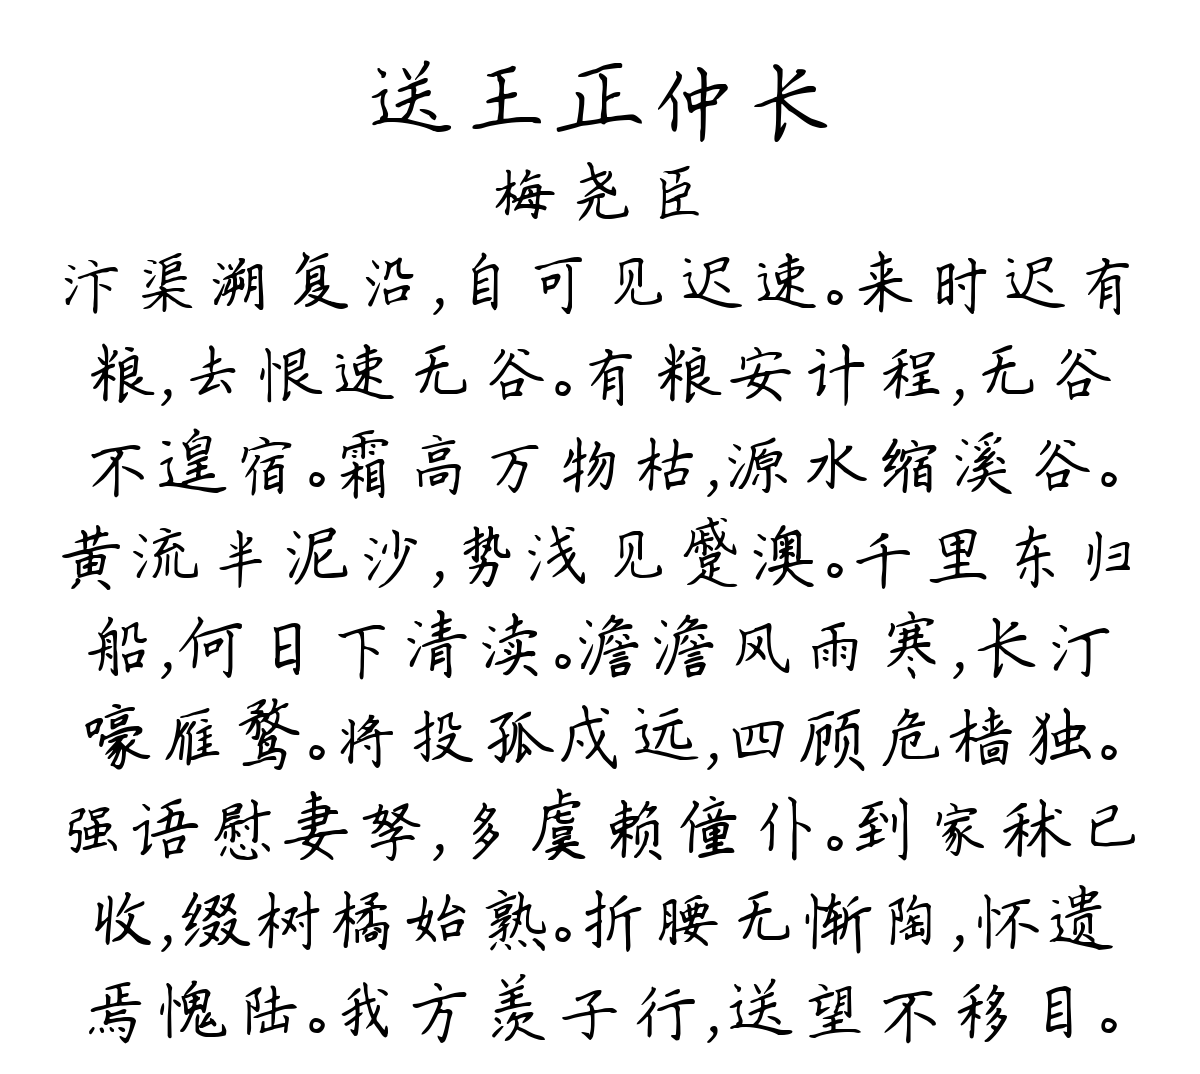 送王正仲长
梅尧臣
汴渠溯复沿,自可见迟速。来时迟有
粮,去恨速无谷。有粮安计程,无谷
不遑宿。霜高万物枯,源水缩溪谷。
黄流半泥沙,势浅见蹙澳。千里东归
船,何日下清渎。澹澹风雨寒,长汀
嚎雁鹜。将投孤戍远,四顾危樯独。
强语慰妻孥,多虞赖僮仆。到家秫已
收,缀树橘始熟。折腰无惭陶,怀遗
焉愧陆。我方羡子行,送望不移目。